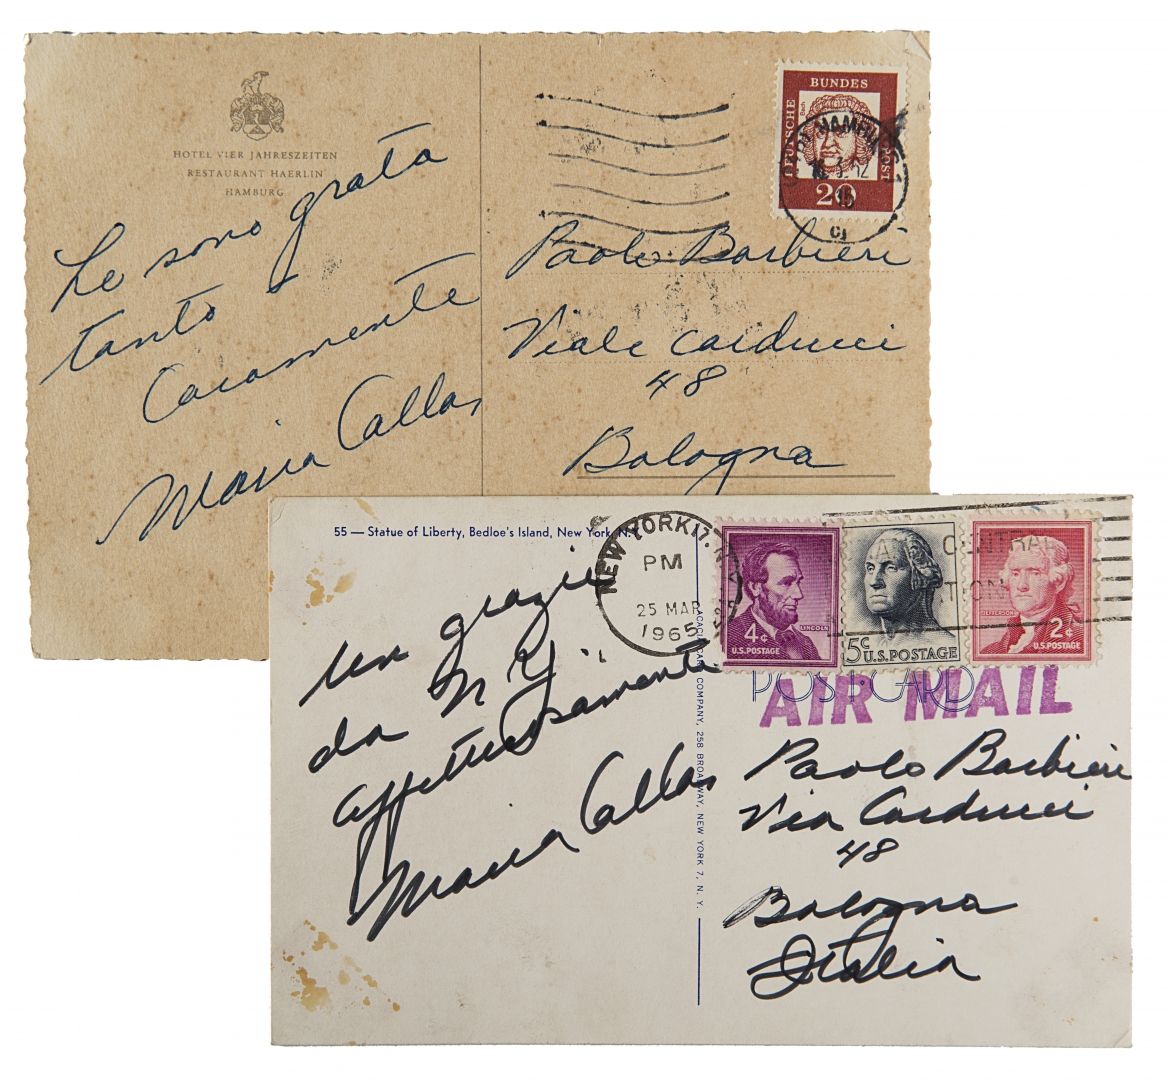 HOTEL VIER JAHRESZEITEN
RESTAURANT HAERLIN
HAMBURG
Le sono grata
tanto
Caramente
Maria Callas
DEUTSCHE
BUNDES
POST
Bach
20
HAMBURG
15
cj
Paolo Barbieri
Viale Carducci
48
Bologna
55 — Statue of Liberty, Bedloe's Island, New York, N.Y.
un grazie
da N Y.
affettuosamente
Maria Callas
NEW YORK 17, N.Y.
PM
25 MAR
1965
GRAND CENTRAL
STATION
4¢
LINCOLN
U.S. POSTAGE
5¢
U.S. POSTAGE
JEFFERSON
2¢
U.S. POSTAGE
POST CARD
AIR MAIL
ACACIA CARD COMPANY, 258 BROADWAY, NEW YORK 7, N. Y.
Paolo Barbieri
Via Carducci
48
Bologna
Italia